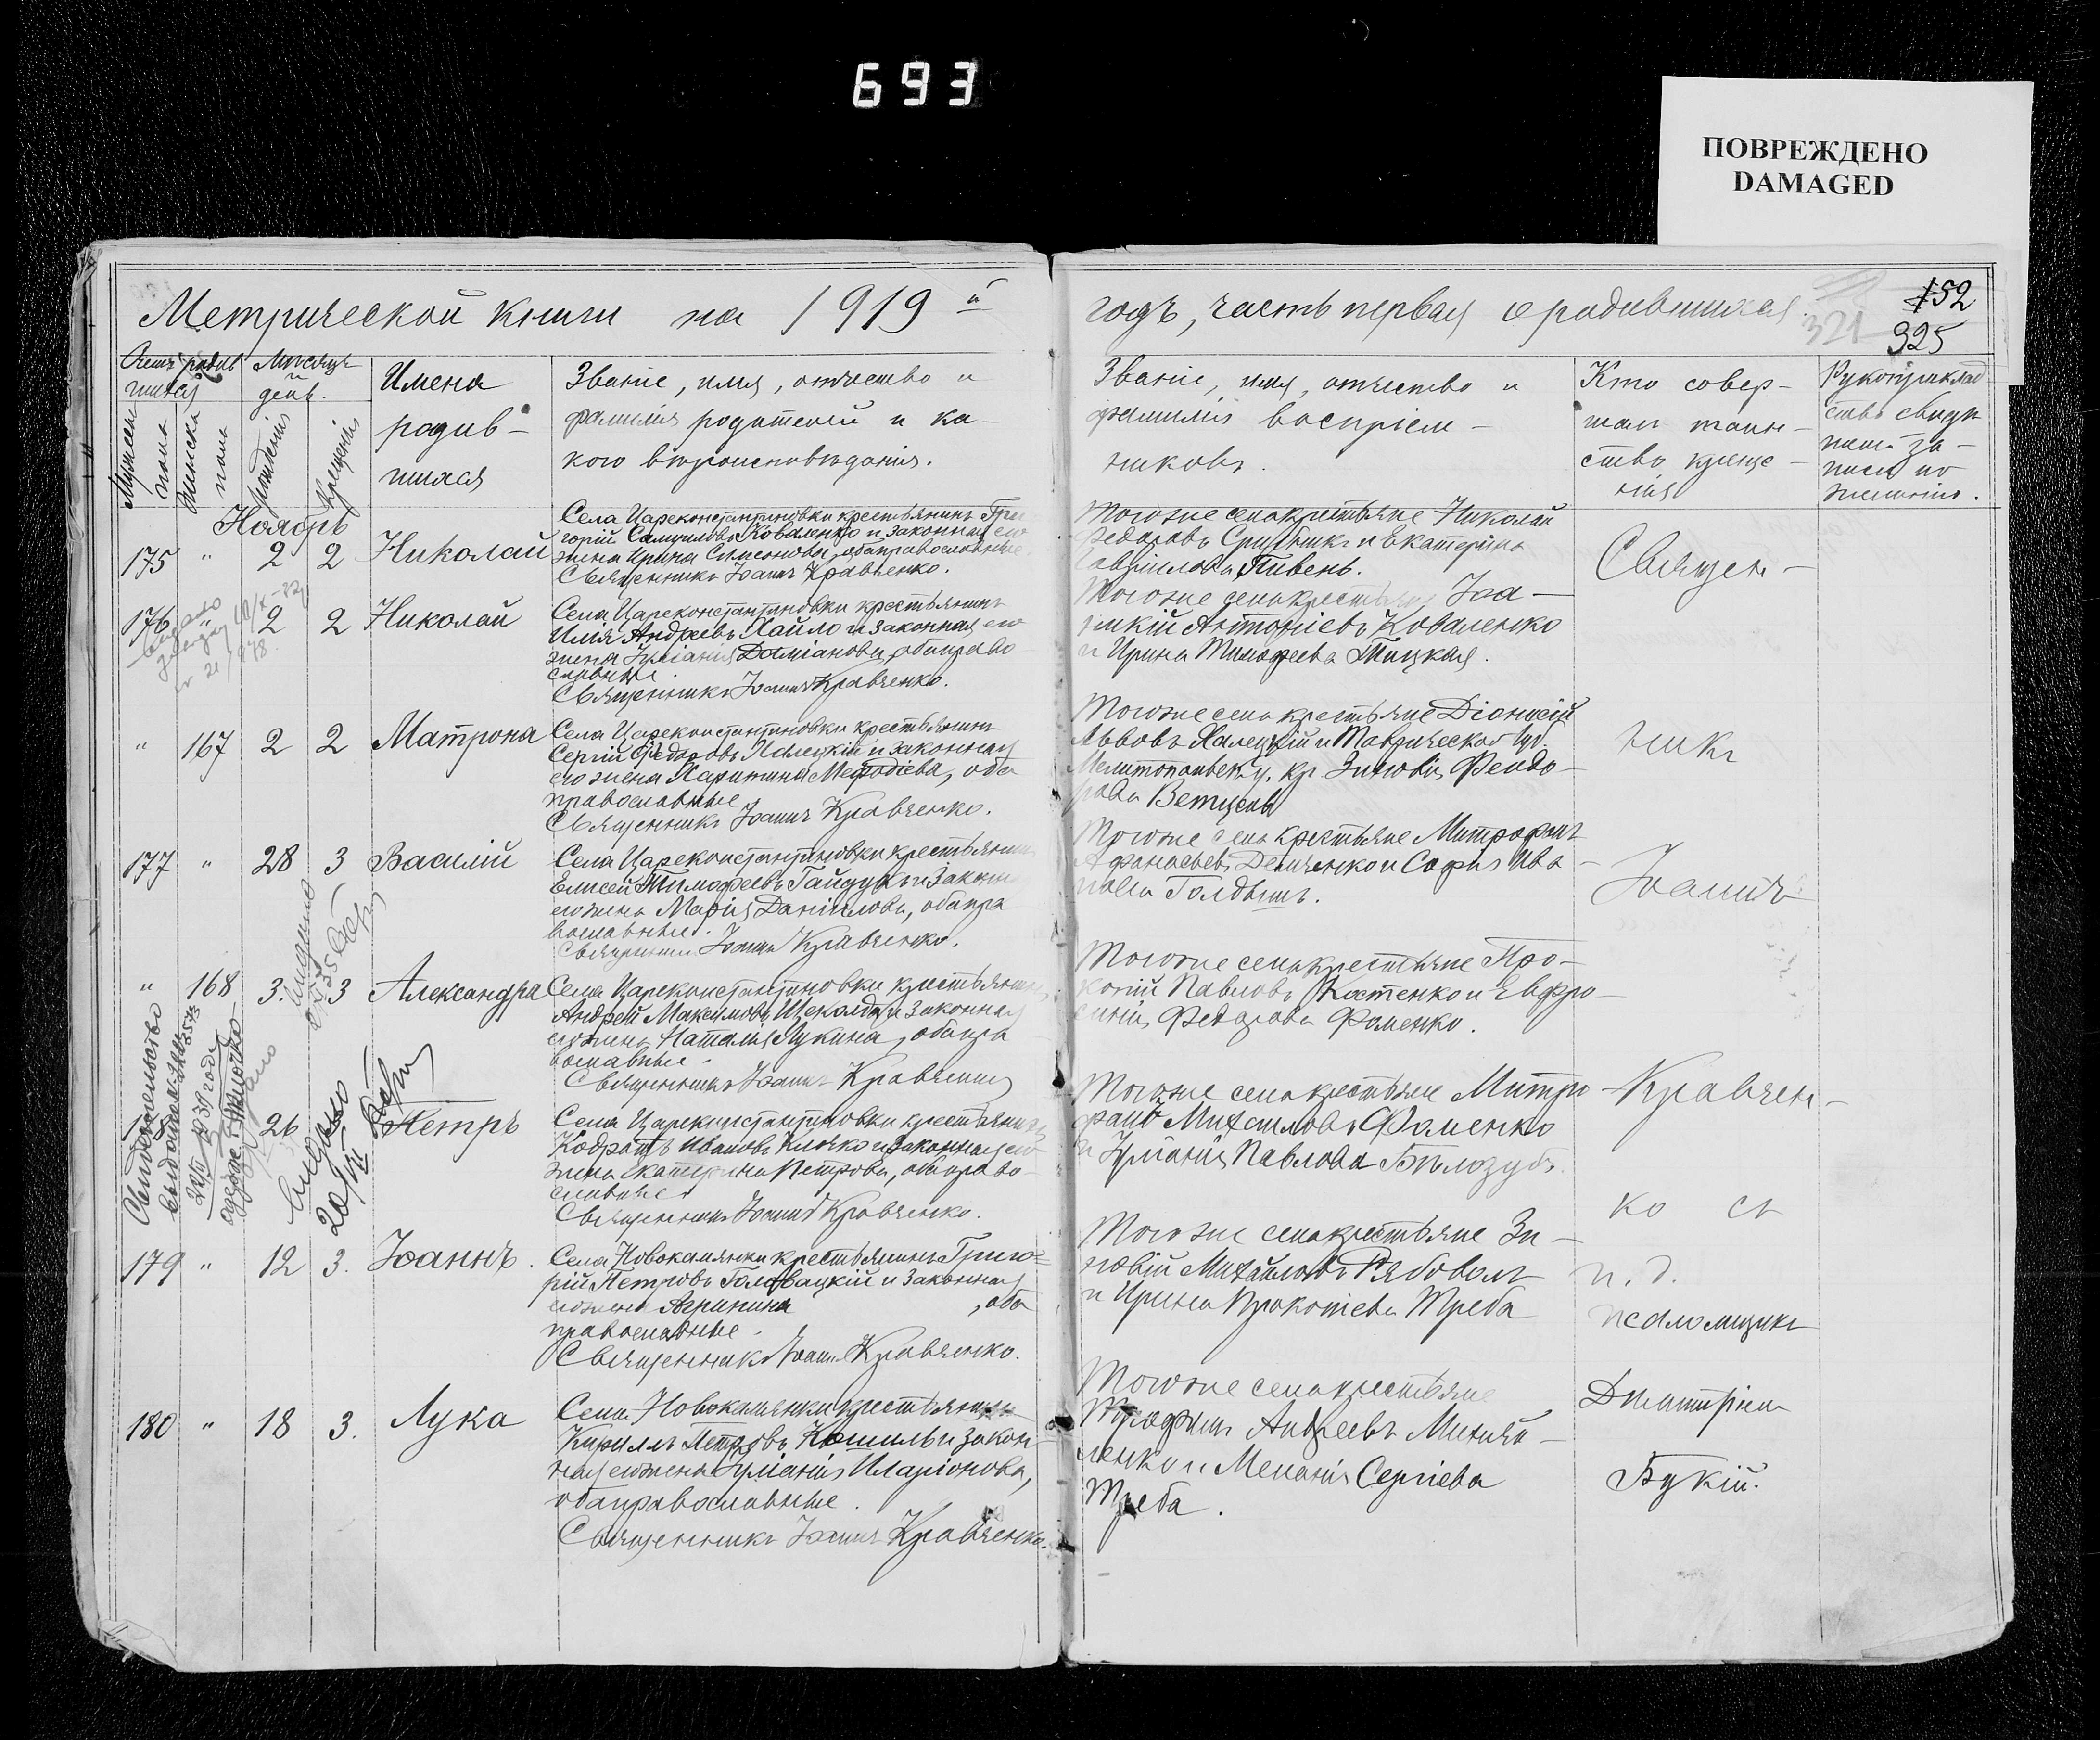 693
ПОВРЕЖДЕНО
DAMAGED
Метрической книги на 1919 й
годъ, часть первая о родившихся.
152
321
325
Счетъ родив
шихся
Мужеска
пола
Женска
пола
Мѣсяцъ
день
рожденія
крещенія
Имена
родив-
шихся
Званіе, имя, отчество и
фамилія родителей и ка-
кого вѣроисповѣданія.
Званіе, имя, отчество и
фамилія воспріем-
никовъ.
Кто совер-
шал таин-
ство креще-
нія
Рукоприклад
ство свидѣ
телей за-
писи по
желанію.
Ноябрь
175 " 2 2 Николай
Села Цареконстантиновки крестьянинъ Гри
горій Самуиловъ Коваленко и законная его
жена Ирина Симеонова, оба православные
Священникъ Іоаннъ Кравченко.
Тогоже села крестьяне Николай
Федоровъ и Екатерина
Гавріилова Пивень.
176 " 2 2 Николай
Села Цареконстантиновки крестьянинъ
Илія Андреевъ Хайло и законная его
жена Іуліанія Доміанова, оба право
славные.
Священникъ Іоаннъ Кравченко.
Тогоже села крестьяне Іоа-
никій Антоніевъ Коваленко
и Ирина Тимофеева
" 167 2 2 Матрона
Села Цареконстантиновки крестьянинъ
Сергій Федоровъ Халецкій и законная
его жена Харитина Мефодіева, оба
православные
Священникъ Іоаннъ Кравченко.
Тогоже села крестьяне Діонисій
Львовъ Халецкій и Таврической губ.
Мелитопольск. у. кр. Зиновія Феодо-
рова
177 " 28 3 Василій
Села Цареконстантиновки крестьянинъ
Елисей Тимофеевъ Гайдукъ и законная
его жена Марія Даніилова, оба пра
вославные.
Священникъ Іоаннъ Кравченко.
Тогоже села крестьяне Митрофанъ
Афанасьевъ Демченко и Софія Ива-
нова
" 168 3 3 Александра
Села Цареконстантиновки крестьянинъ
Андрей Максимовъ и законная
его жена Наталія Лукина, оба пра
вославные.
Священникъ Іоаннъ Кравченко
Тогоже села крестьяне Про-
копій Павловъ Костенко и Евфро-
синія Федорова Фоменко.
26 Петръ
Села Цареконстантиновки крестьянинъ
Кодратъ Ивановъ Клочко и законная его
жена Екатерина Петрова, оба право-
славные
Священникъ Іоаннъ Кравченко.
Тогоже села крестьяне Митро-
фанъ Михаиловъ Фоменко
и Іуліанія Павлова Бѣлозубъ.
179 " 12 3. Іоаннъ.
Села Новокаменки крестьянинъ Григо-
рій Петровъ Головацкій и законная
его жена Агрипина , оба
православные.
Священникъ Іоаннъ Кравченко.
Тогоже села крестьяне Зи-
новій Михайловъ Рябоволъ
и Ирина Прокопіева Треба
180 " 18 3. Лука
Села Новокаменки крестьянинъ
Кириллъ Петровъ Кошиль и закон-
ная его жена Іуліанія Иларіонова,
оба православные.
Священникъ Іоаннъ Кравченко.
Тогоже села крестьяне
Трофимъ Андреевъ
и Меланія Сергіева
Треба.
Священ-
никъ
Іоаннъ
Кравчен-
ко съ
и. д.
псаломщика
Дмитріем
Букій.
Свидетельство
выдано
1939 года
Выдано
20/VII